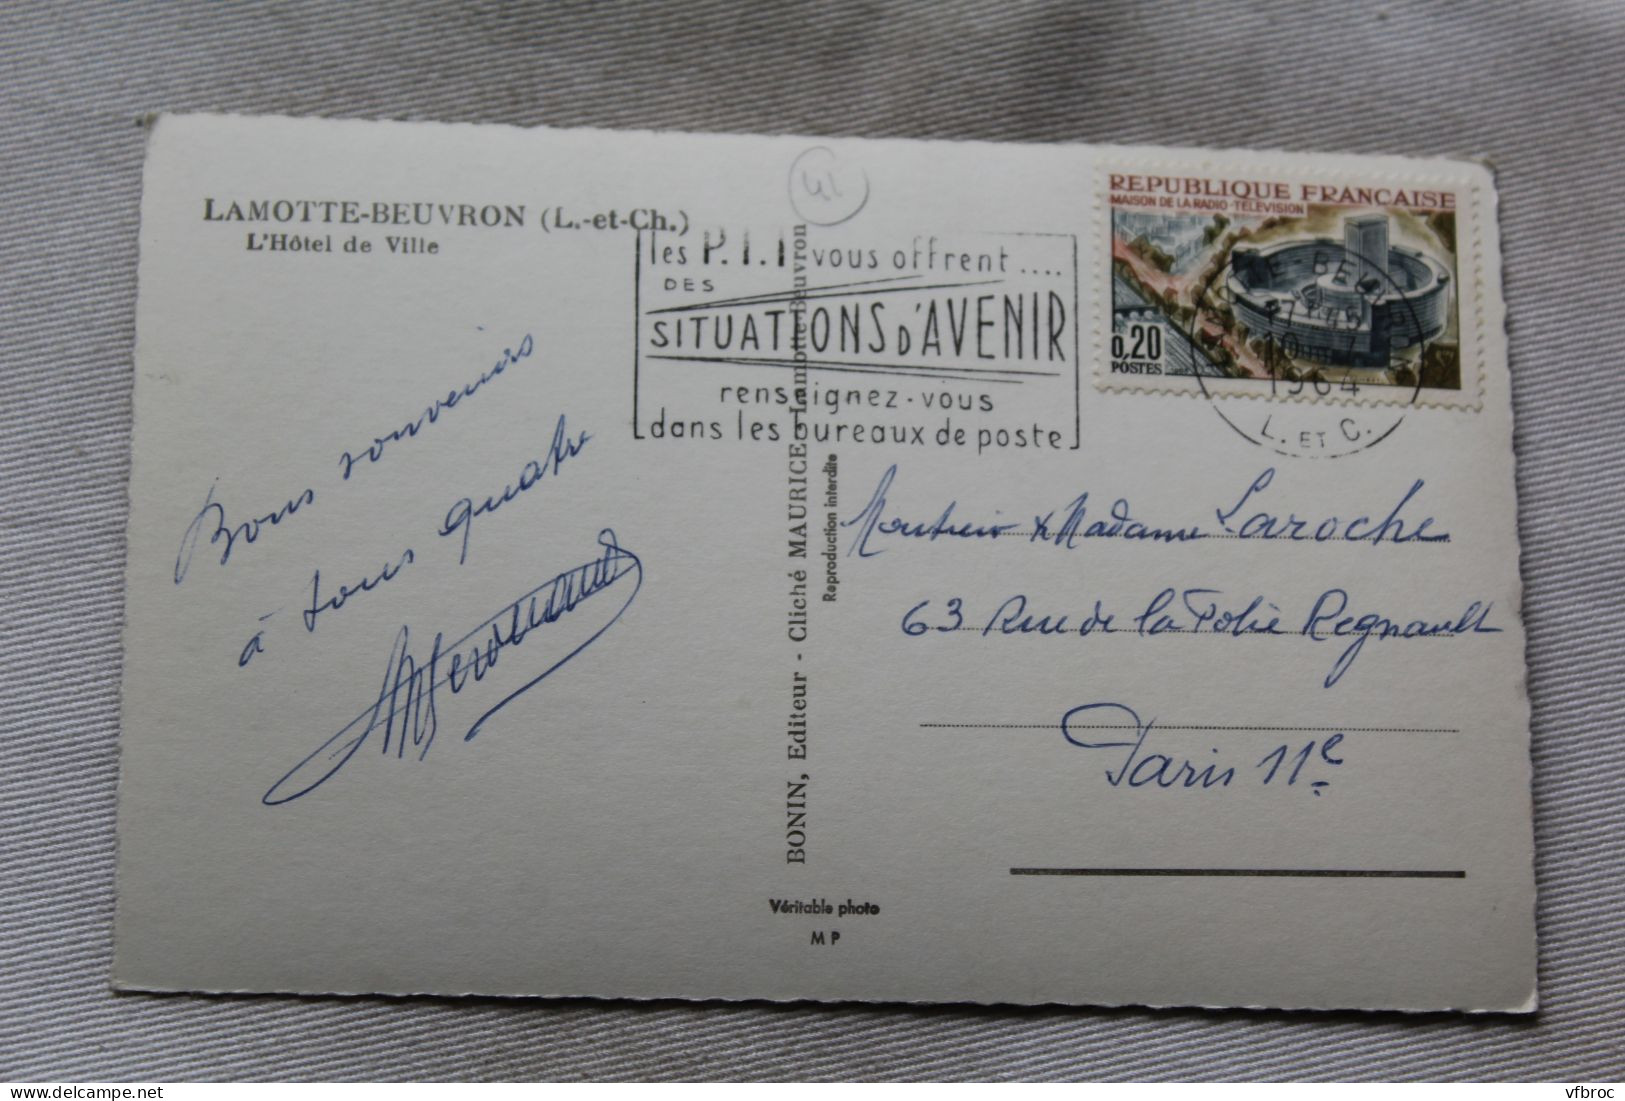 LAMOTTE-BEUVRON (L.-et-Ch.)
L'Hôtel de Ville
41
les P.T.T vous offrent....
DES
SITUATIONS D'AVENIR
renseignez-vous
dans les bureaux de poste
REPUBLIQUE FRANÇAISE
MAISON DE LA RADIO-TELEVISION
0,20
POSTES
BEUVRON
1964
L. ET C.
Bons souvenirs
à tous quatre
BONIN, Editeur - Cliché MAURICE, Lamotte-Beuvron
Reproduction interdite
Monsieur & Madame Laroche
63 Rue de la Folie Regnault
Paris 11e
Véritable photo
M P
vfbroc